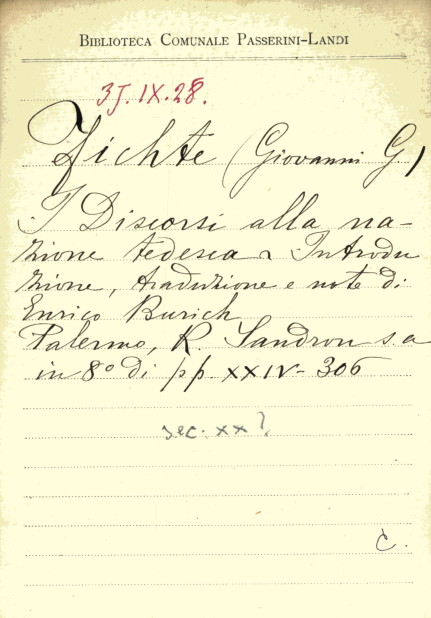 BIBLIOTECA COMUNALE PASSERINI-LANDI
3J.IX.28.
Fichte (Giovanni G)
I Discorsi alla na-
zione tedesca Introdu
zione, traduzione e note di
Enrico Burich
Palermo, R. Sandron s.a
in 8° di pp. XXIV-306
sec. XX?
C.